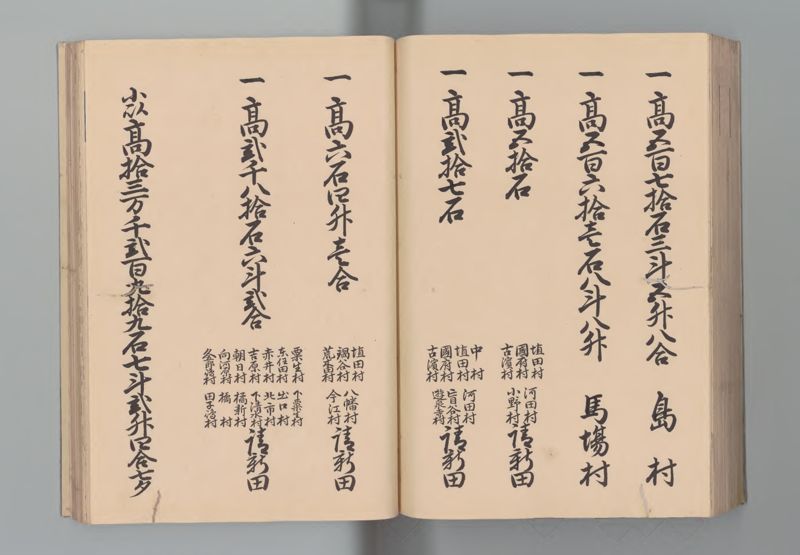 一高五百七拾石三斗五升八合 島村
一高五百六拾壱石八斗八升 馬場村
一高五拾石
埴田村 河田村
國府村 小野村
古濱村
請新田
一高弐拾七石
中村 河田村
埴田村
國府村 遊泉寺村
古濱村
請新田
一高六石四升壱合
埴田村 八幡村
蒲谷村 今江村
荒木田村
請新田
一高弐千八拾石六斗弐合
粟生村 下粟生村
赤井村 出口村
吉原村 北市村
朝日村 下清水村
向濱村 橘新村
橘村
田子嶋村
請新田
小以高拾三万千弐百九拾九石七斗弐升四合七夕